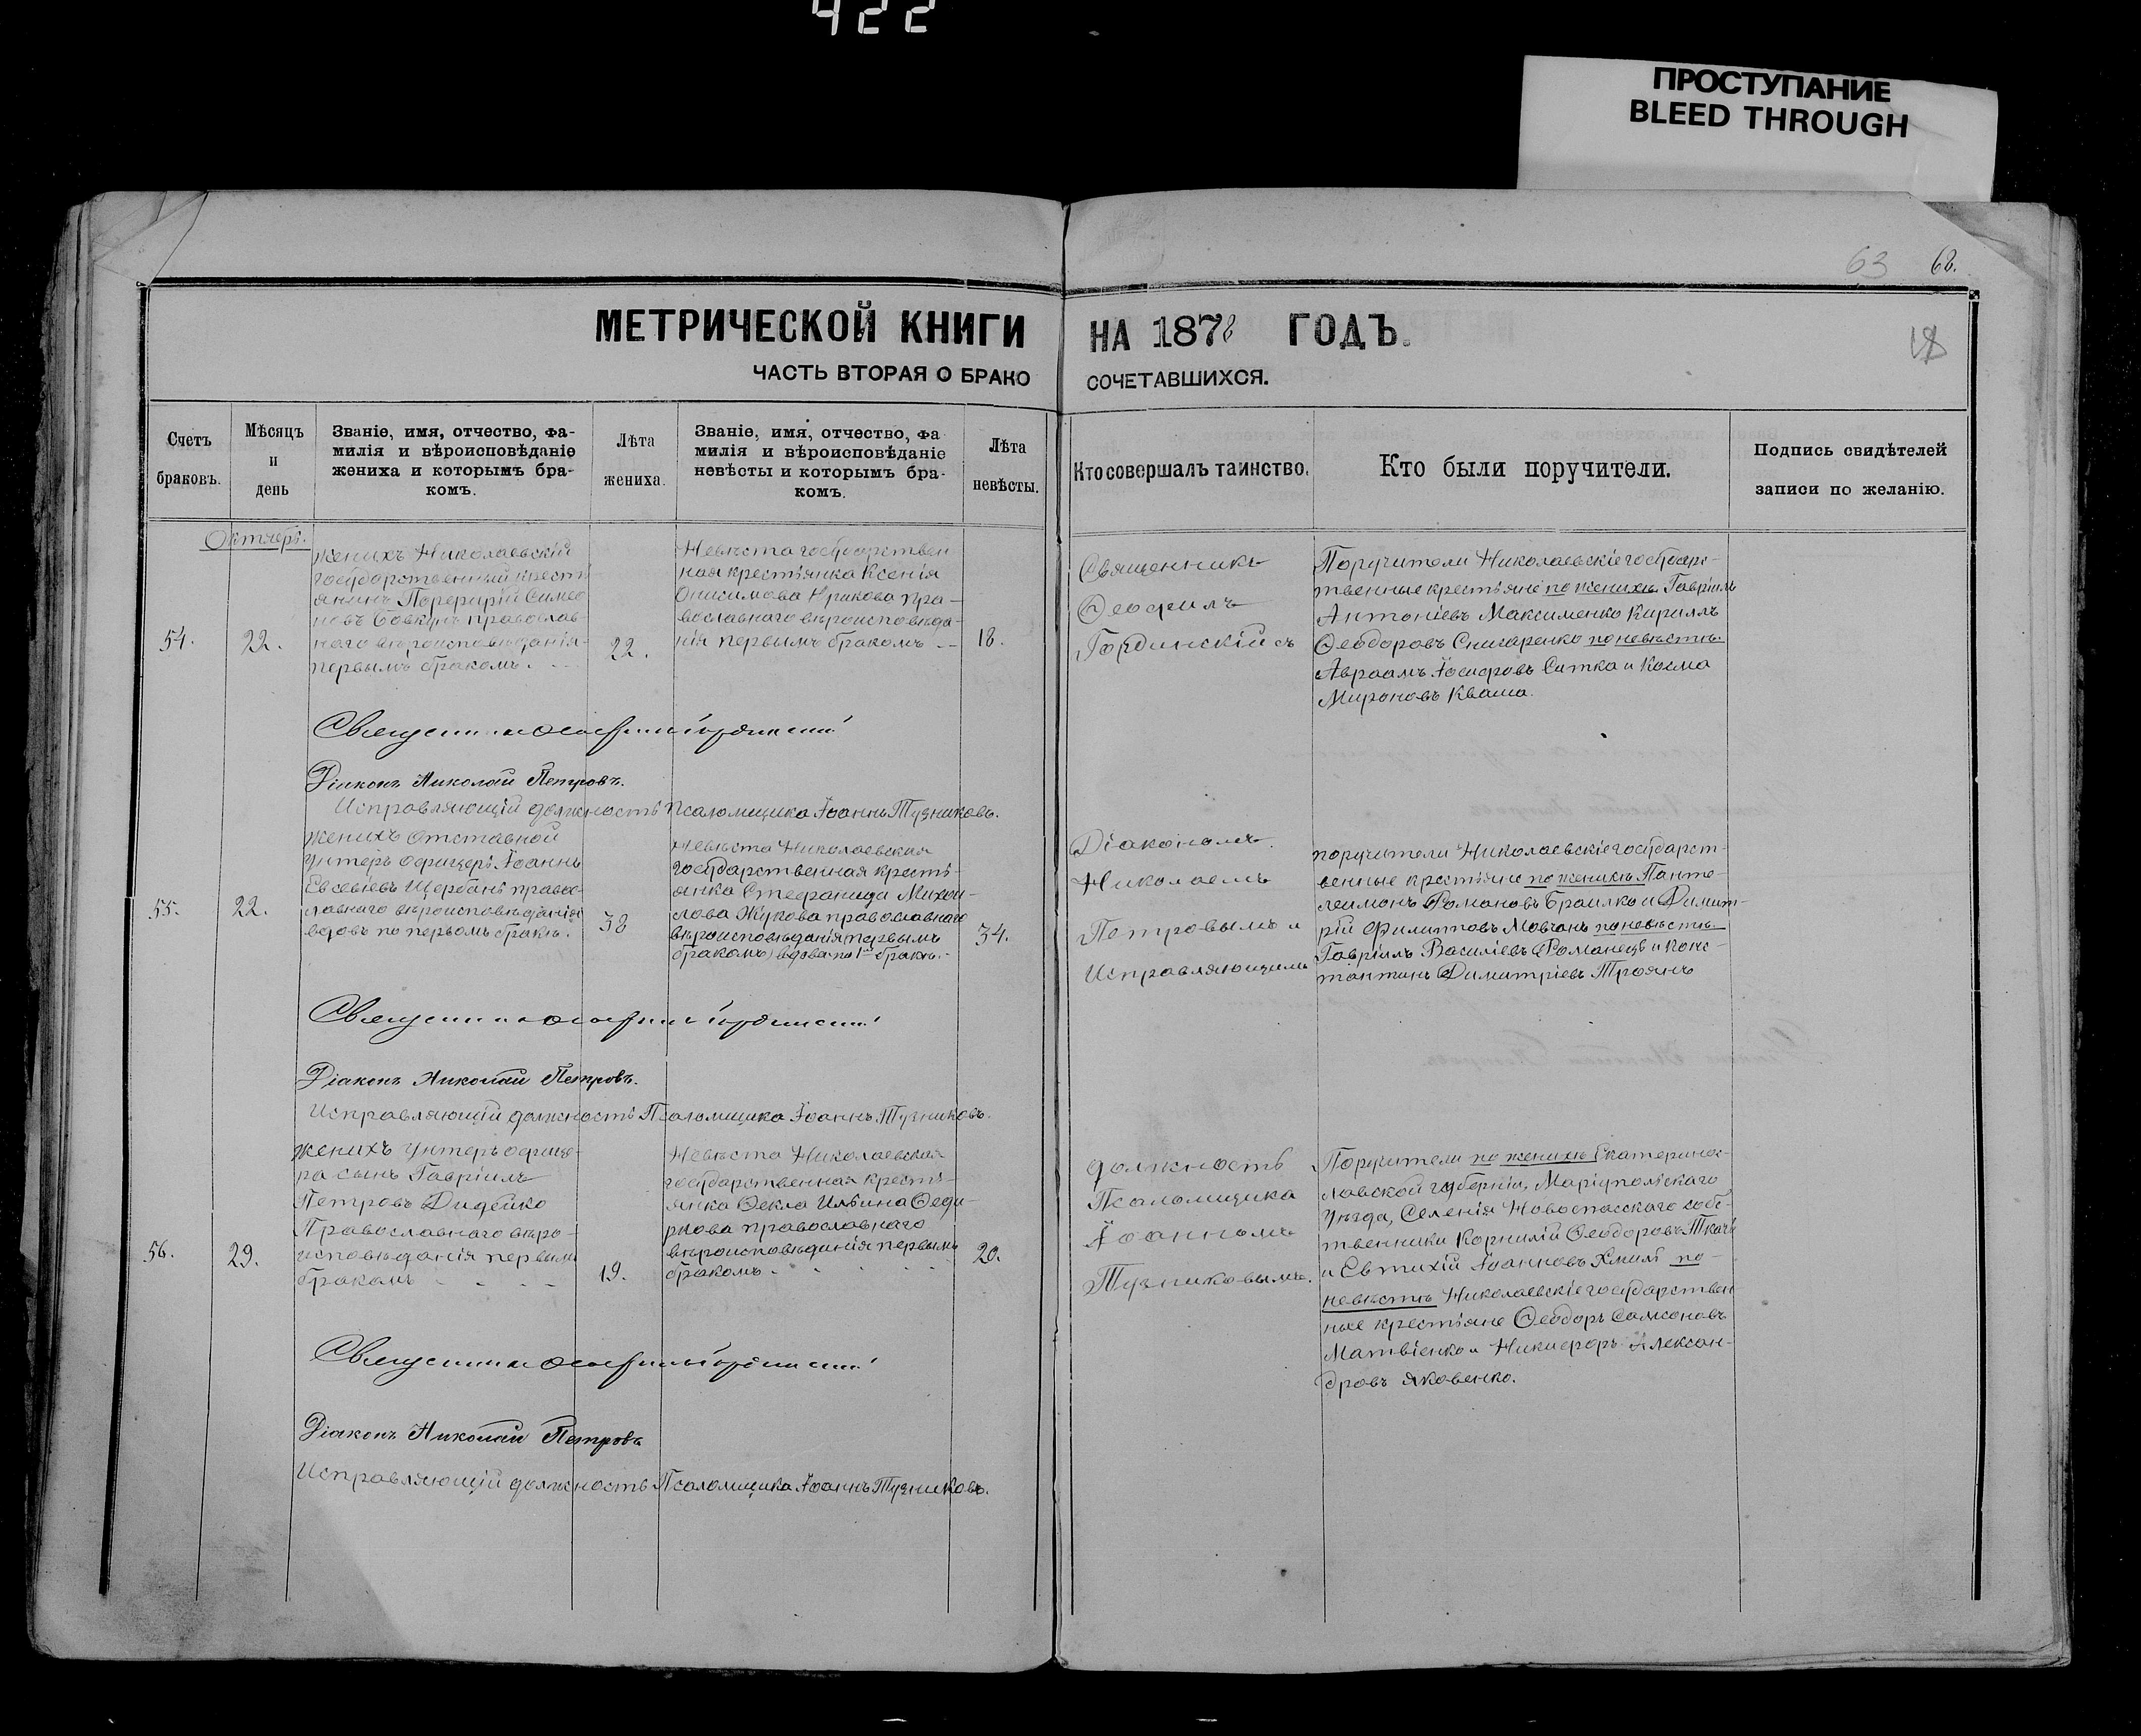 422
ПРОСТУПАНИЕ
BLEED THROUGH
63 68.
МЕТРИЧЕСКОЙ КНИГИ НА 1878 ГОДЪ.
ЧАСТЬ ВТОРАЯ О БРАКО СОЧЕТАВШИХСЯ.
Счетъ браковъ.
Мѣсяцъ и день
Званіе, имя, отчество, фа-
милія и вѣроисповѣданіе
жениха и которымъ бра-
комъ.
Лѣта жениха.
Званіе, имя, отчество, фа
милія и вѣроисповѣданіе
невѣсты и которымъ бра-
комъ.
Лѣта невѣсты.
Кто совершалъ таинство.
Кто были поручители.
Подпись свидѣтелей
записи по желанію.
Октябрь.
54.
22.
Женихъ Николаевскій
государственный крестья
янинъ Порфирій Симео
новъ Бовкунъ православ
наго вѣроисповѣданія
первымъ бракомъ.
22.
Невѣста государствен
ная крестьянка Ксенія
Онисимова пра-
вославнаго вѣроисповѣда-
нія первымъ бракомъ
18.
Священникъ
Ѳеофилъ
Гординскій съ
Поручители Николаевскіе государс-
твенные крестьяне по женихѣ Гавріилъ
Антоніевъ Максименко Кириллъ
Ѳеодоровъ по невѣстѣ
Авраамъ Іосифовъ Ситка и Косма
Мироновъ Кваша.
Священникъ Ѳеофилъ Гординскій
Діаконъ Николай Петровъ.
Исправляющій должность Псаломщика Іоаннъ Тузниковъ.
55.
22.
Женихъ отставной
Унтеръ офицеръ Іоаннъ
Евсевіевъ Щербань правос-
лавнаго вѣроисповѣданія
вдовъ по первомъ бракѣ.
38
Невѣста Николаевская
государственная кресть-
янка Стефанида Михаи-
лова Жукова православнаго
вѣроисповѣданія первымъ
бракомъ) вдова по 1мъ бракѣ.
34.
Діакономъ
Николаемъ
Петровымъ и
Исправляющимъ
поручители Николаевскіе государст-
венные крестьяне по женихѣ Панте-
леимонъ Романовъ Браилко и Димит-
рій Филипповъ Мовчанъ по невѣстѣ
Гавріилъ Василіевъ Романецъ и Конс-
тантинъ Димитріевъ Троянъ
Священникъ Ѳеофилъ Гординскій
Діаконъ Николай Петровъ.
Исправляющій должность Псаломщика Іоаннъ Тузниковъ.
56.
29.
Женихъ Унтеръ офице-
ра сынъ Гавріилъ
Петровъ Дидейко
Православнаго вѣро-
исповѣданія первымъ
бракомъ
19.
Невѣста Николаевская
государственная кресть-
янка Ѳекла Ильина
православнаго
вѣроисповѣданія первымъ
бракомъ
20.
должность
Псаломщика
Іоанномъ
Тузниковымъ.
Поручители по женихѣ Екатеринос-
лавской губерніи, Маріупольскаго
Уѣзда, Селенія Новоспасскаго собс-
твенники Корнилій Ѳеодоровъ Ткачь
и Евтихій Іоанновъ Хмиль по
невѣстѣ Николаевскіе государствен
ные крестьяне Ѳеодоръ Самсоновъ
Матвіенко и Никифоръ Алексан-
дровъ Яковенко.
Священникъ Ѳеофилъ Гординскій
Діаконъ Николай Петровъ
Исправляющій должность Псаломщика Іоаннъ Тузниковъ.